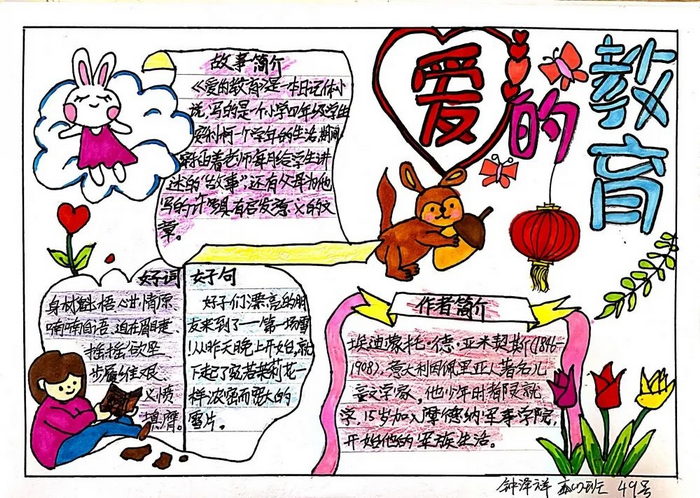 爱的教育
故事简介
《爱的教育》是一本日记体小
说,写的是一个小学四年级学生
安利柯一个学年的生活,期间
穿插着老师每月给学生讲
述的"故事",还有父母为他
写的许多具有启发意义的文
章。
好词
身材魁梧 心甘情愿
喃喃自语、迫在眉睫、
摇摇欲坠
步履维艰、
义愤
填膺。
好句
好子们漂亮的朋
友来到了——第一场雪
!从昨天晚上开始,就
下起了宛若茉莉花一
样浓密而硕大的
雪片。
作者简介
埃迪蒙托·德·亚米契斯(1846-
1908),意大利因佩里亚人,著名儿
童文学家,他少年时者阝灵就
学,15岁加入摩德纳军事学院,
开始他的军旅生活。
钟泽祥
49号